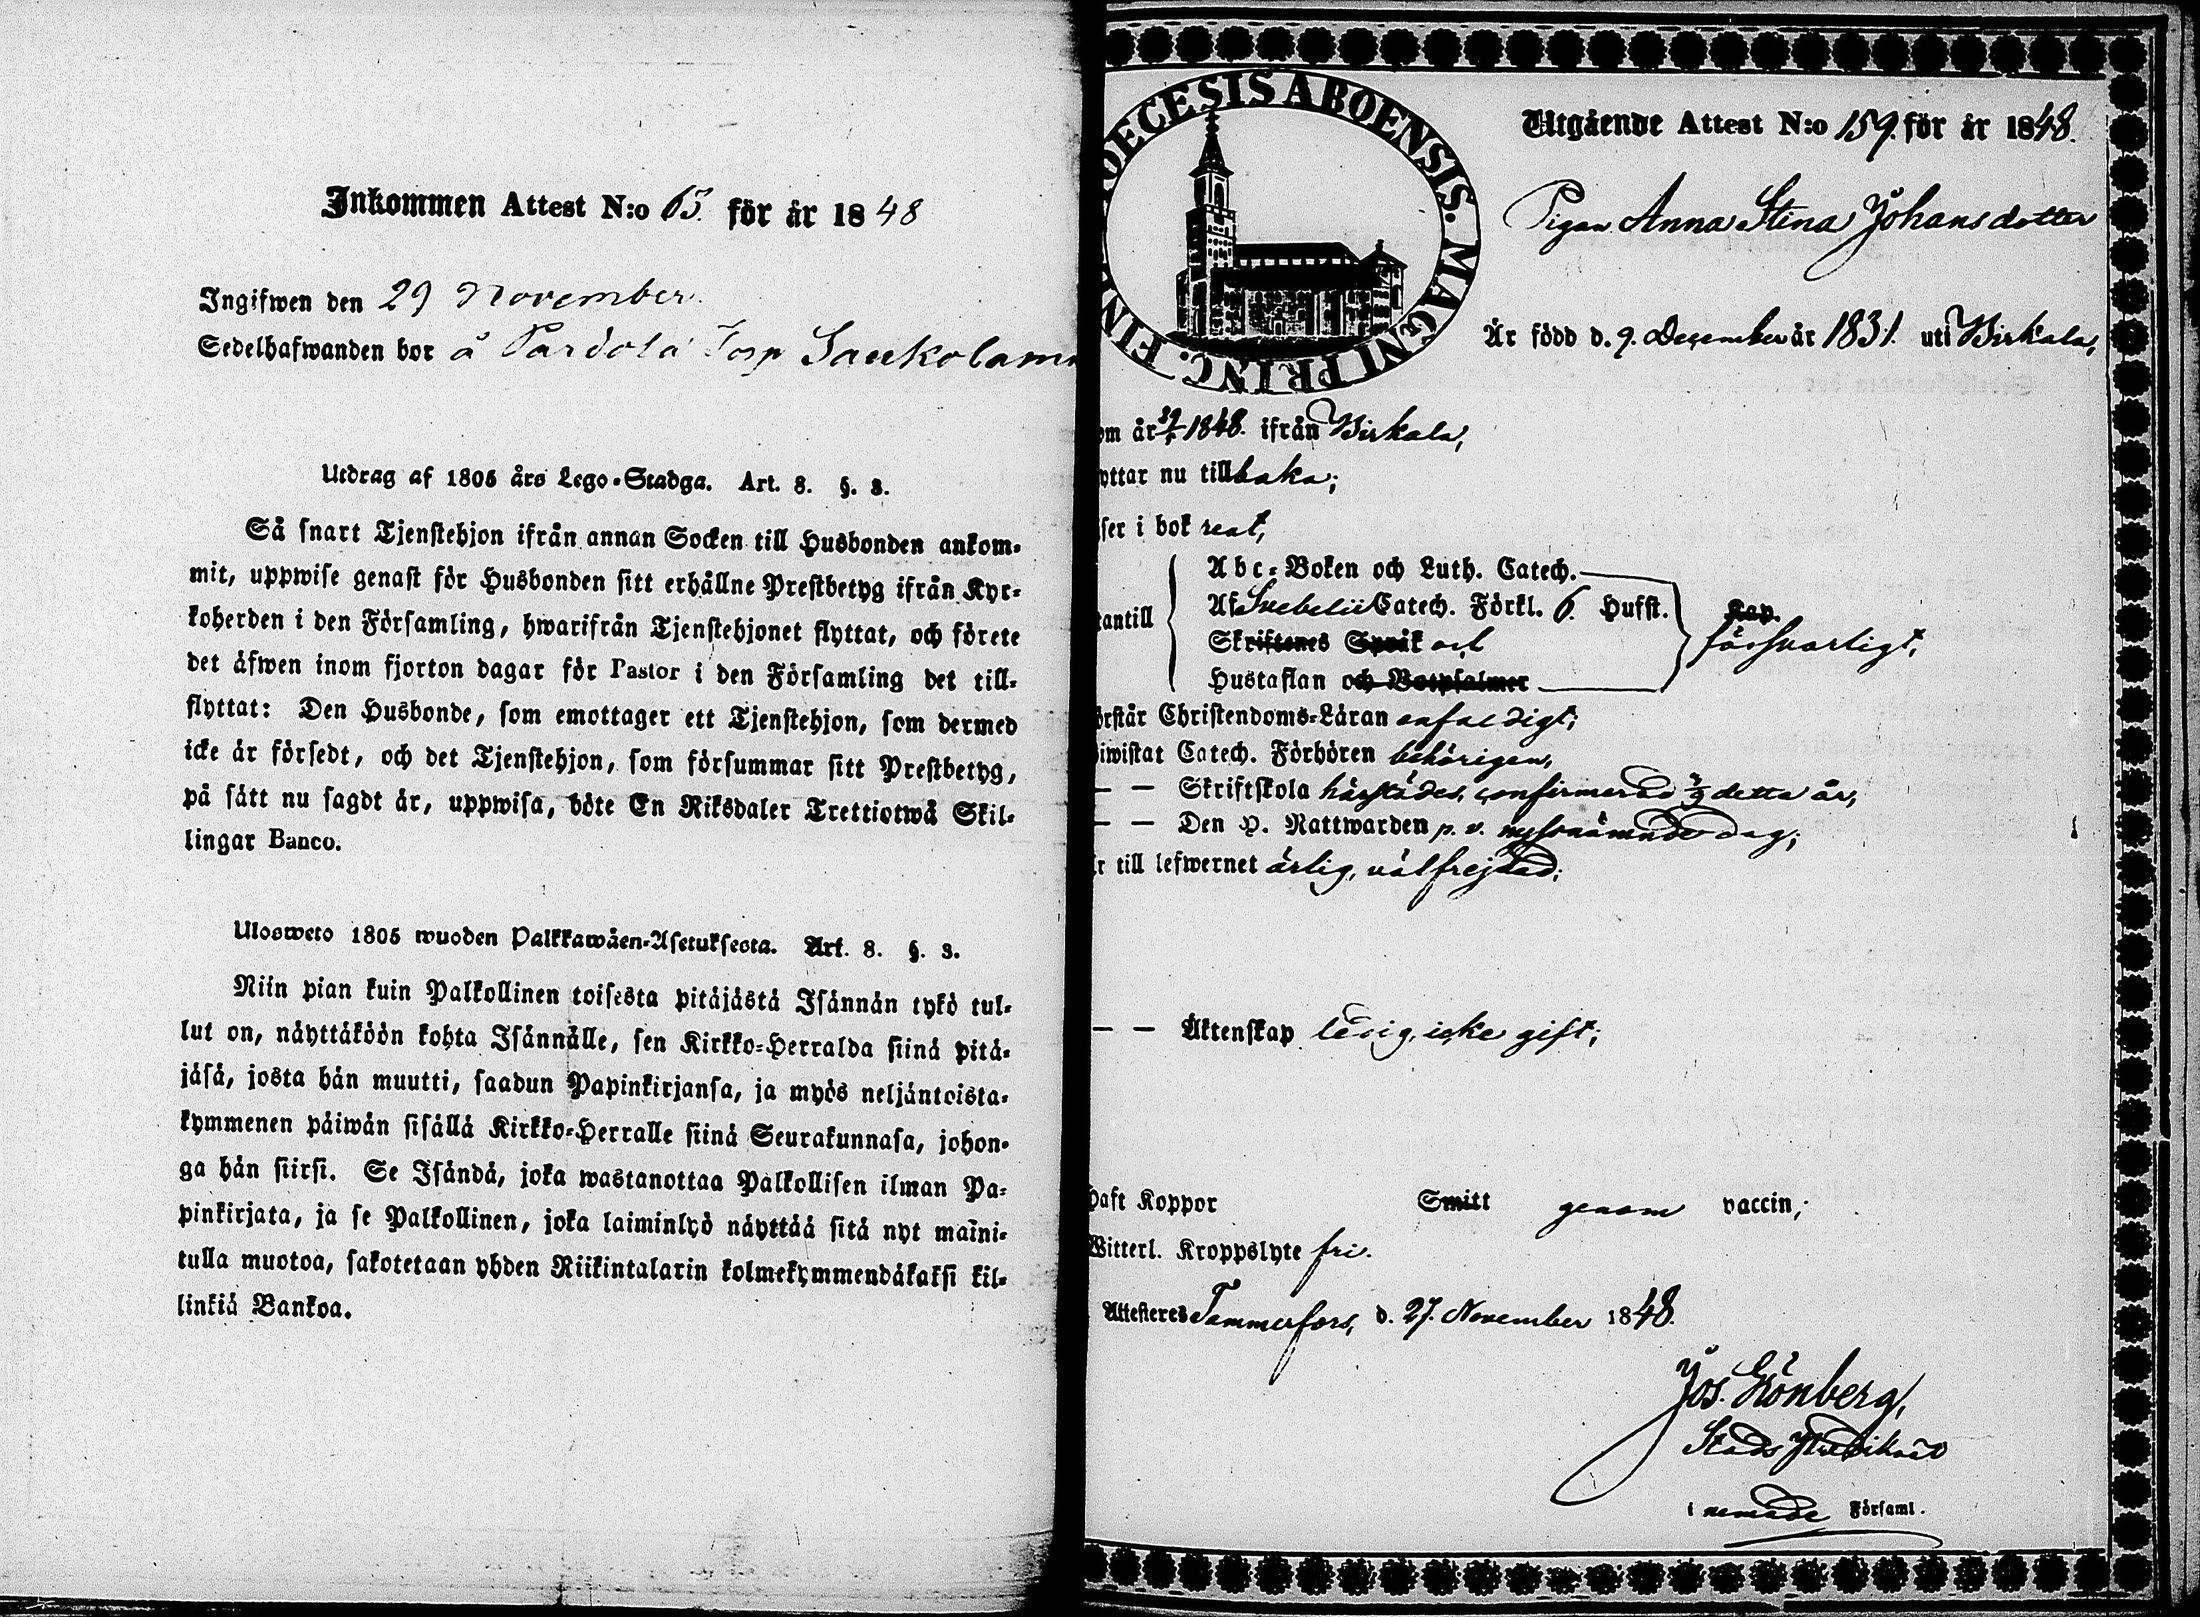 Inkommen Attest N:o 63. för år 1848
Ingifwen den 29 November.
Sedelhafwanden bor å Pardola Torp Saukola
Utdrag af 1805 års Lego-Stadga. Art. 8. §. 3.
Så snart Tjenstehjon ifrån annan Socken till Husbonden ankom-
mit, uppwise genast för Husbonden sitt erhållne Prestbetyg ifrån Kyr-
koherden i den Församling, hwarifrån Tjenstehjonet flyttat, och förete
det äfwen inom fjorton dagar för Pastor i den Församling det till-
flyttat: Den Husbonde, som emottager ett Tjenstehjon, som dermed
icke är försedt, och det Tjenstehjon, som försummar sitt Prestbetyg,
på sätt nu sagdt är, uppwisa, böte En Riksdaler Trettiotwå Skil-
lingar Banco.
Ulosweto 1805 wuoden Palkkawäen-Asetuksesta. Art. 8. §. 3.
Niin pian kuin Palkollinen toisesta pitäjästä Isännän tykö tul-
lut on, näyttäköön kohta Isännälle, sen Kirkko-Herralda siinä pitä-
jäsä, josta hän muutti, saadun Papinkirjansa, ja myös neljäntoista-
kymmenen päiwän sisällä Kirkko-Herralle siinä Seurakunnasa, johon-
ga hän siirsi. Se Isändä, joka wastanottaa Palkollisen ilman Pa-
pinkirjata, ja se Palkollinen, joka laiminlyö näyttää sitä nyt maini-
tulla muotoa, sakotetaan yhden Riikintalarin kolmekymmendäkaksi kil-
linkiä Bankoa.
DECESIS ABOENSIS. MAGNI PRINC. FIN
Utgående Attest N:o 159. för år 1848.
Pigan Anna Stina Johansdotter
Är född d. 9. December år 1831. uti Birkala,
om år 1848. ifrån Birkala,
yttar nu tillbaka;
ser i bok rent,
tantill
Abc-Boken och Luth. Catech.
Af Svebelii Catech. Förkl. 6. Hufst.
Skriftenes Språk och
Hustaflan och Botpsalmer
Kap.
försvarligt,
örstår Christendoms-Läran enfaldigt;
iwistat Catech. Förhören behörigen,
— — Skriftskola härstädes, confirmerad detta år,
— — Den H. Nattwarden p. v. nyssnämnde dag;
r till lefwernet ärlig, välfrejdad;
— — Äktenskap ledig, icke gift;
haft Koppor Smitt genom vaccin;
Witterl. Kroppslyte fri.
Attesteres Tammerfors, d. 27. November 1848.
Jos. Grönberg,
Stads
i nemnde Församl.